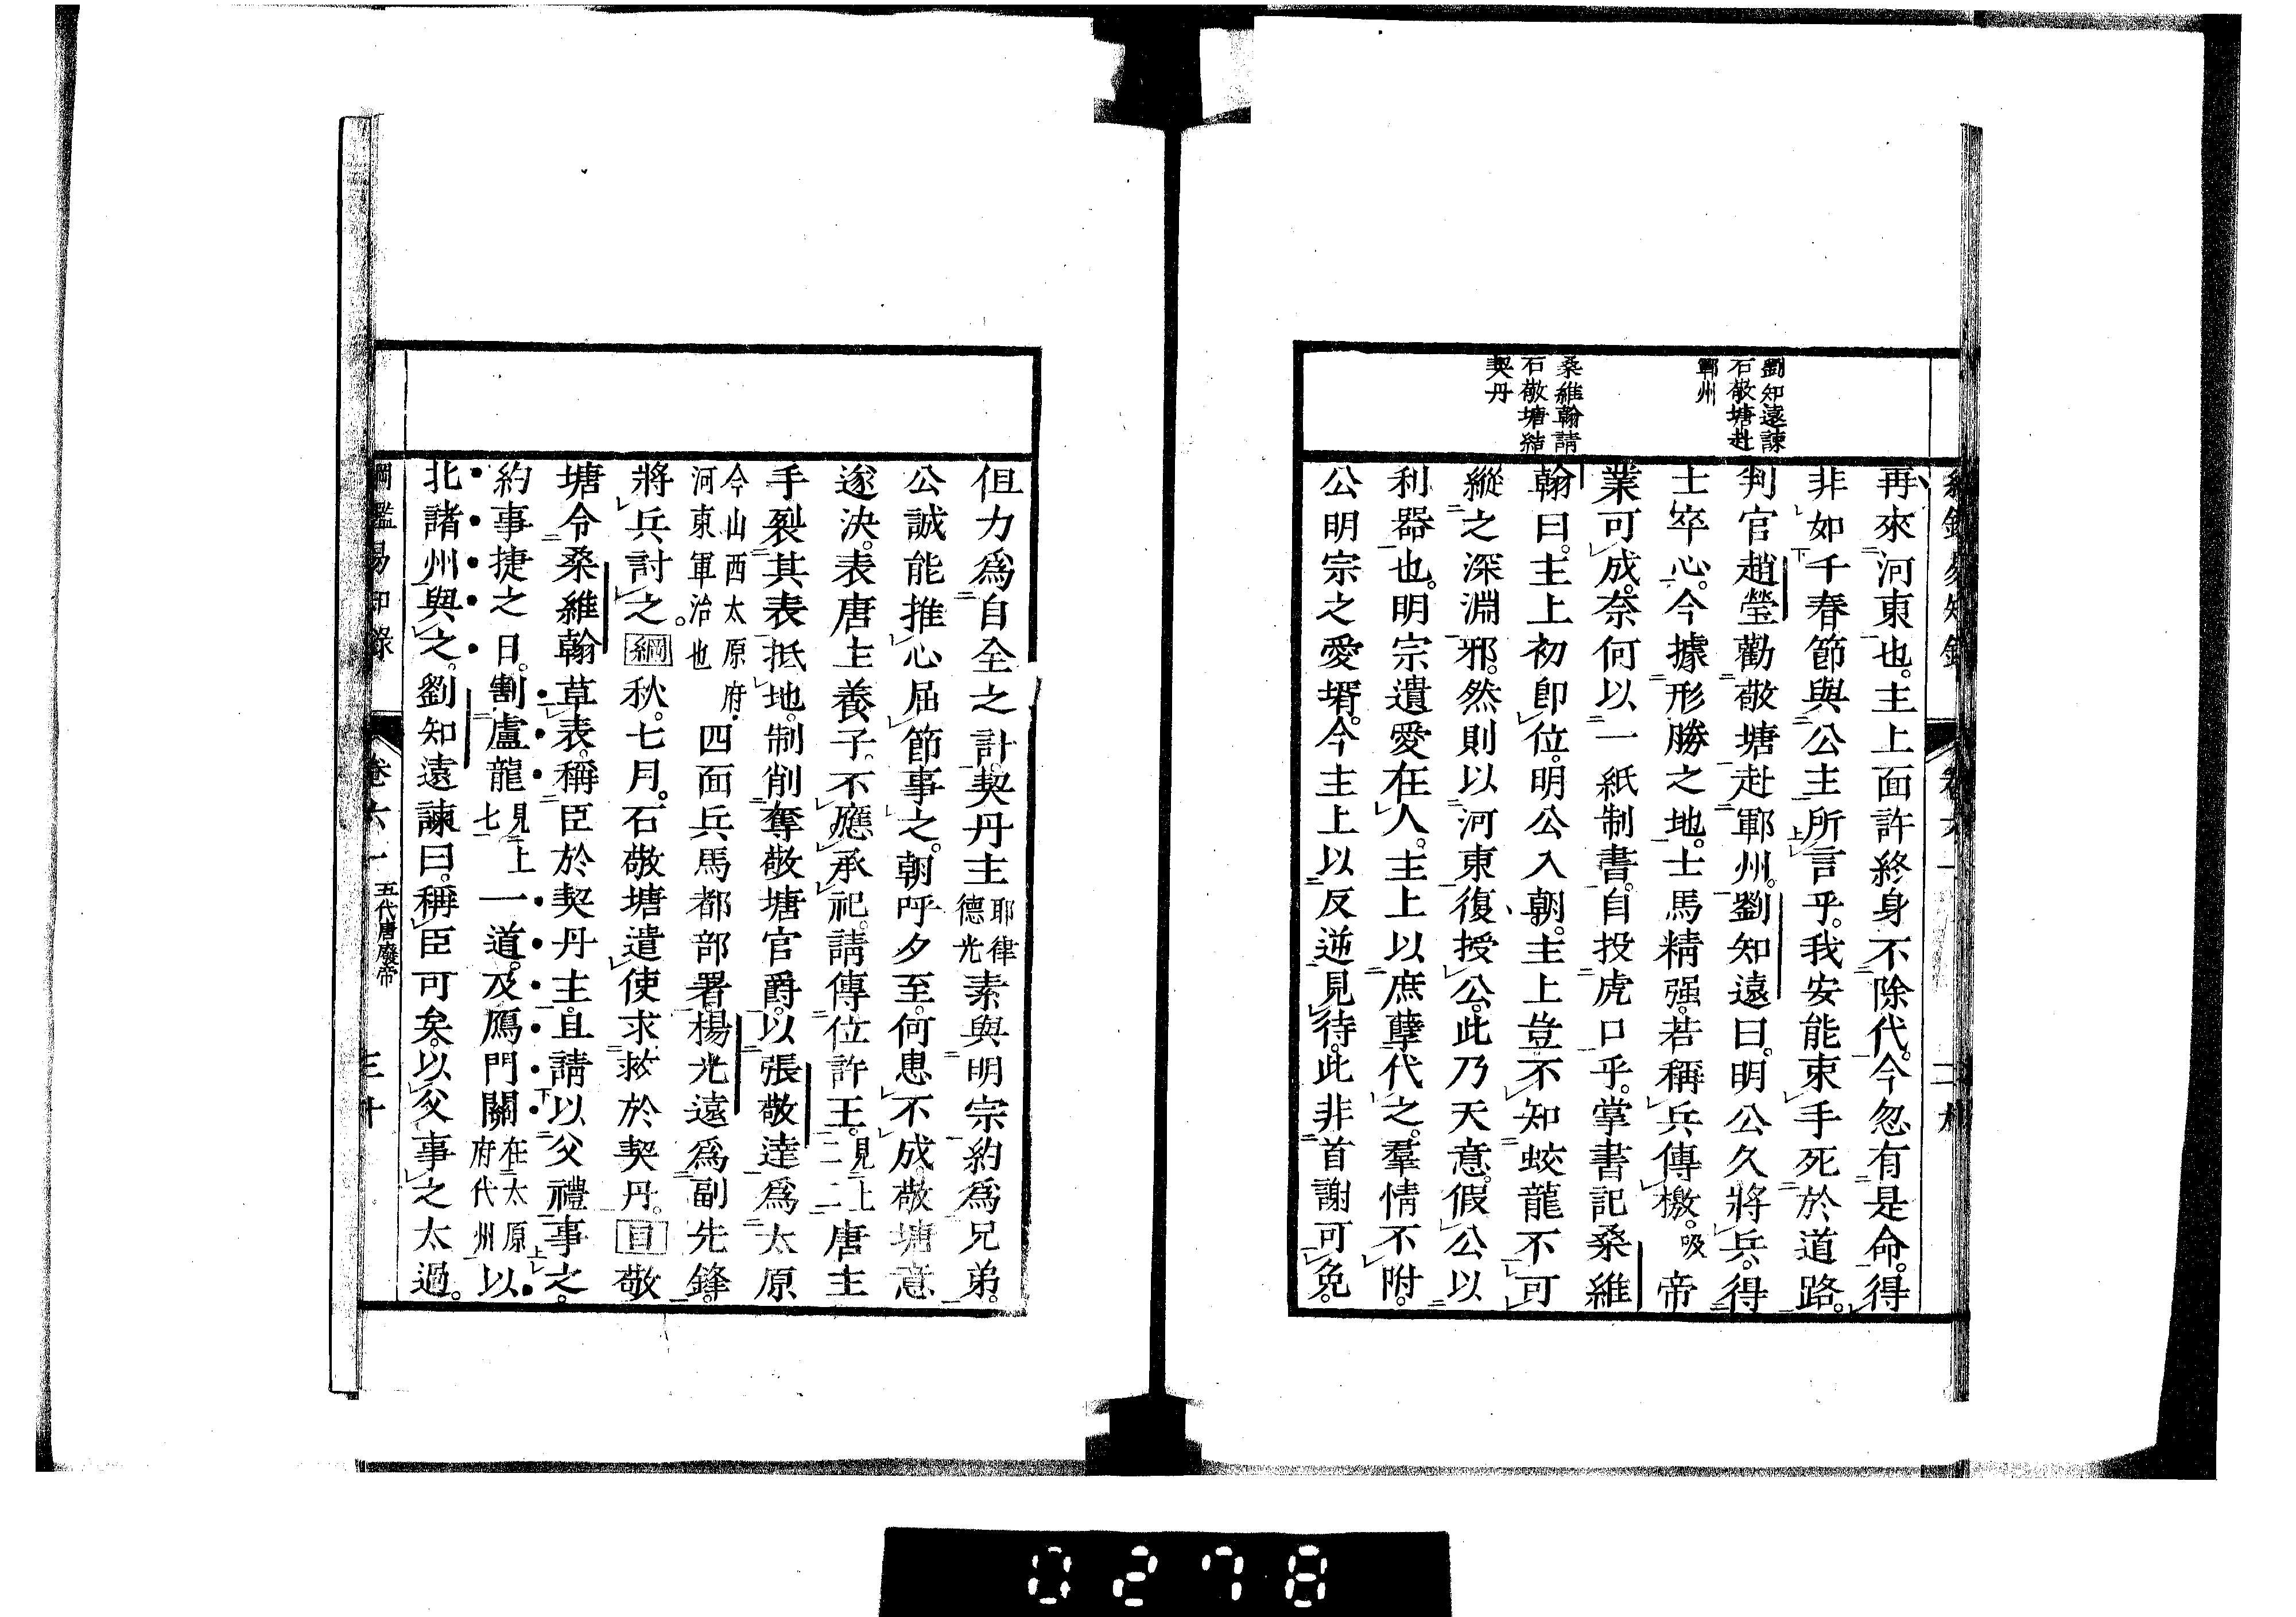 劉知遠諫
石敬塘赴
鄆州
桑維翰請
石敬塘結
契丹
再來河東也。主上面許終身不除代。今忽有是命。得
非如千春節與公主所言乎。我安能束手死於道路。
判官趙瑩勸敬塘赴鄆州。劉知遠曰。明公久將兵。得
士卒心。今據形勝之地。士馬精强。若稱兵傳檄。吸帝
業可成。奈何以一紙制書。自投虎口乎。掌書記桑維
翰曰。主上初卽位。明公入朝。主上豈不知蛟龍不可
縱之深淵邪。然則以河東復授公。此乃天意。假公以
利器也。明宗遺愛在人。主上以庶孽代之。羣情不附。
公明宗之愛壻。今主上以反逆見待。此非首謝可免。
但力爲自全之計。契丹主耶律德光素與明宗約爲兄弟。
公誠能推心屈節事之。朝呼夕至。何患不成。敬塘意
遂決。表唐主養子。不應承祀。請傳位許王。見上二二唐主
手裂其表抵地。制削奪敬塘官爵。以張敬達爲太原
今山西太原府。河東軍治也四面兵馬都部署。楊光遠爲副先鋒。
將兵討之。綱秋。七月。石敬塘遣使求救於契丹。目敬
塘令桑維翰草表。稱臣於契丹主。且請以父禮事之。
約事捷之日。割盧龍見上七一道。及鴈門關在太原府代州以
北諸州與之。劉知遠諫曰。稱臣可矣。以父事之太過。
綱鑑易知錄 卷六一 五代唐廢帝 三十